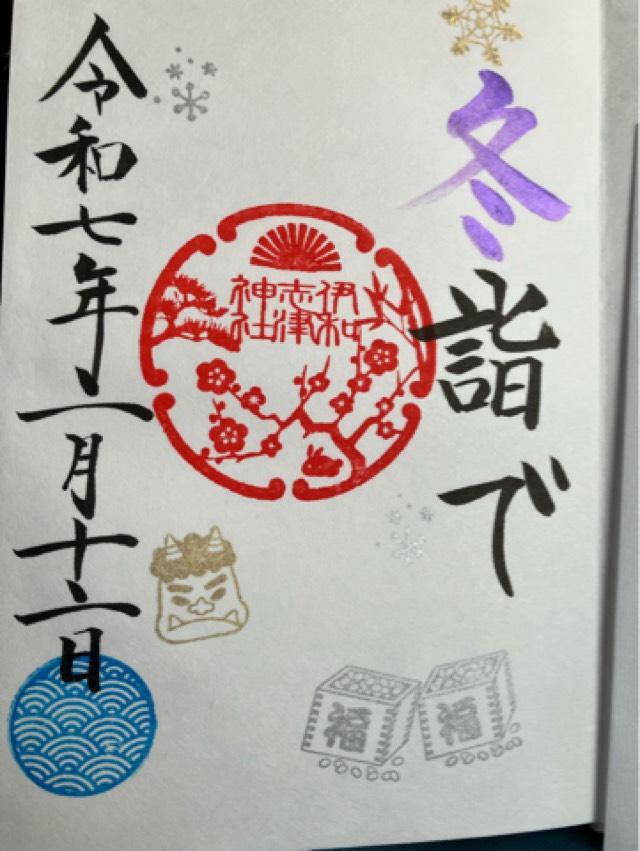 冬詣で
伊和
志津
神社
令和七年二月十二日
福
福